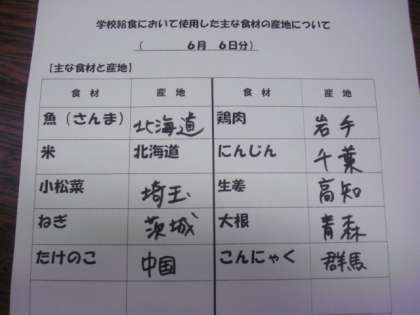 学校給食において使用した主な食材の産地について
( 6月 6日分)
【主な食材と産地】
食材 産地 食材 産地
魚(さんま) 北海道 鶏肉 岩手
米 北海道 にんじん 千葉
小松菜 埼玉 生姜 高知
ねぎ 茨城 大根 青森
たけのこ 中国 こんにゃく 群馬